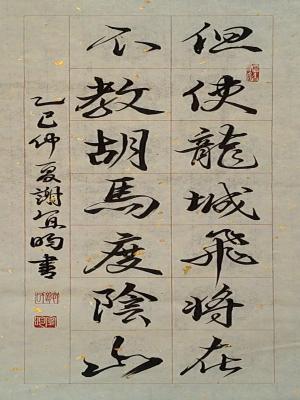 但使龍城飛將在
不教胡馬度陰山
乙巳仲夏謝宜均書